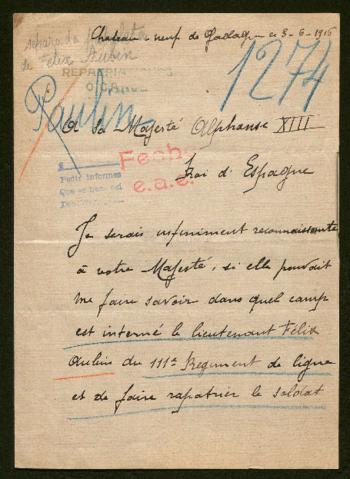 Chateau-neuf de Gadagne 3-6-1916
de Felix Aubin
1274
Paulin
A Sa Majesté Alphonse XIII
Roi d'Espagne
Pedir informes
Je serais infiniment reconnaissante
à votre Majesté, si elle pouvait
me faire savoir dans quel camp
est interné le lieutenant Félix
Aubin du 111e Régiment de ligne
et de faire rapatrier le soldat